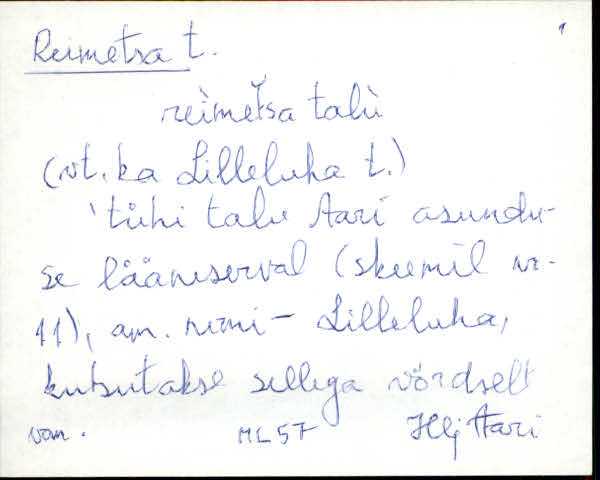 1
Reimetsa t.
reimetsa talu
(vt. ka Lilleluha t.)
'tühi talu Aari asundu-
se lääneserval (skeemil nr.
11), am. nimi – Lilleluha,
kutsutakse sellega võrdselt
van. ML 57 Hlj Aari